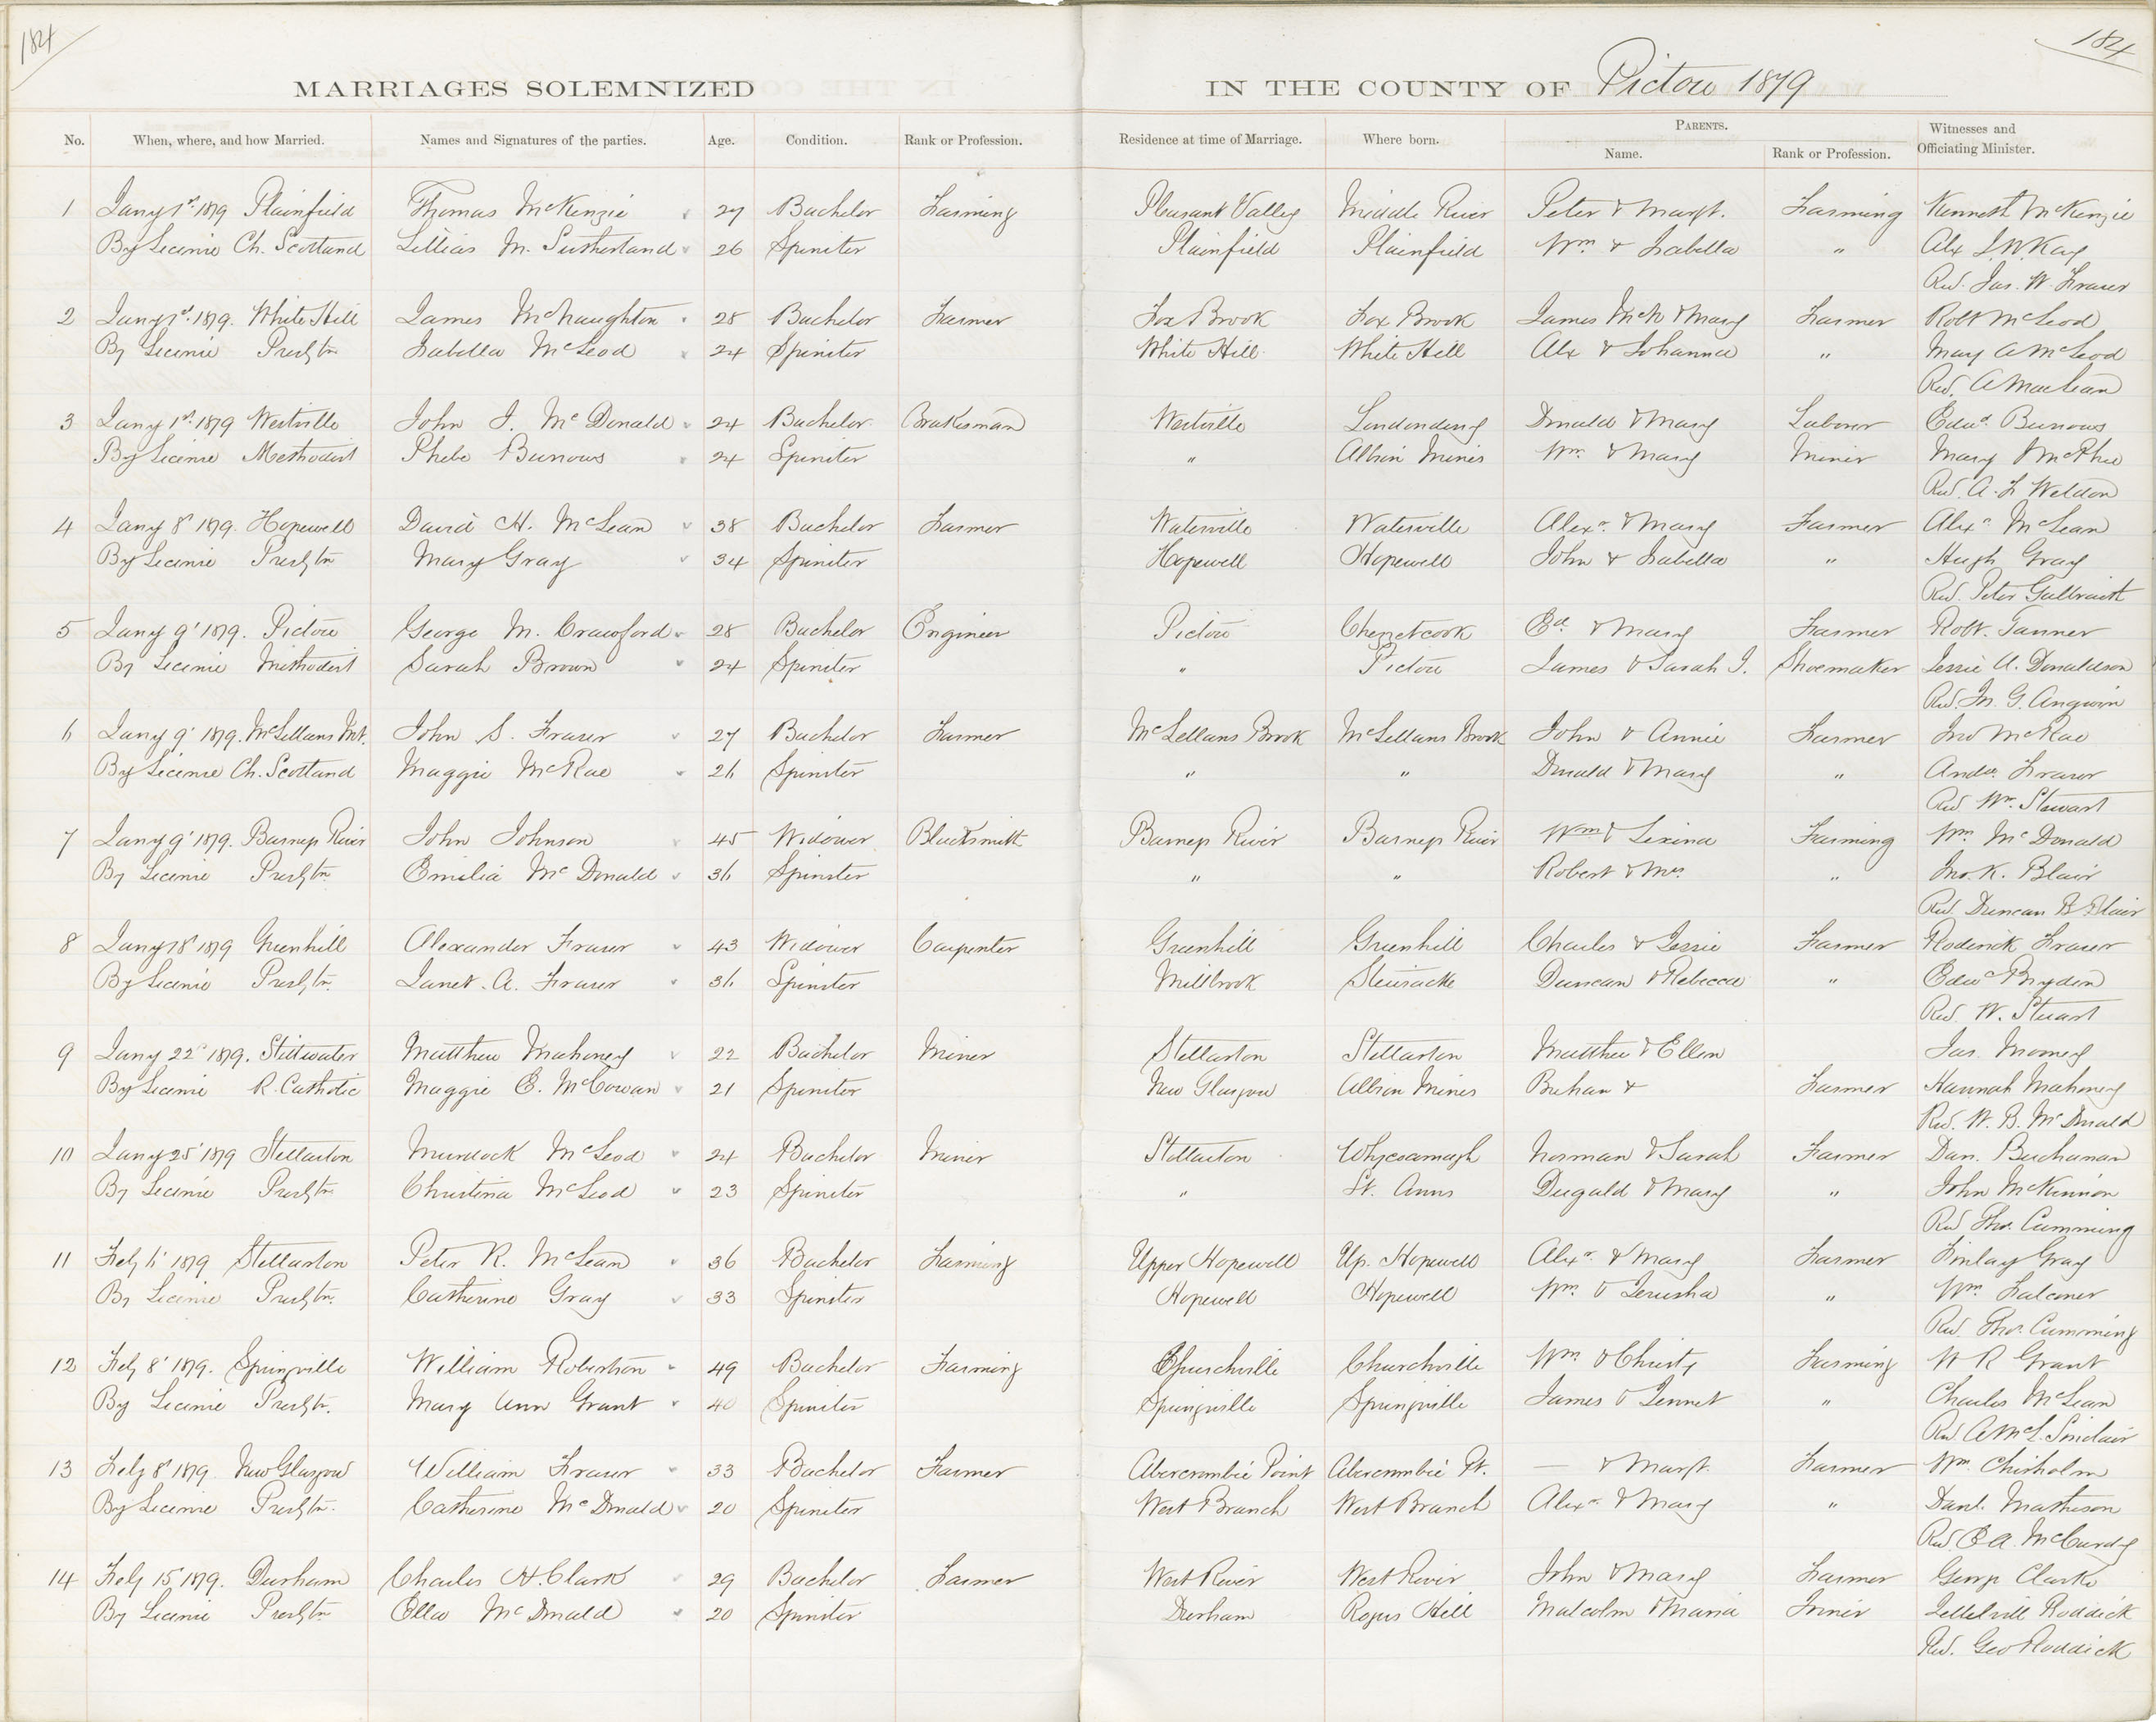 184
184
MARRIAGES SOLEMNIZED IN THE COUNTY OF Pictou 1879
No. When, where, and how Married. Names and Signatures of the parties. Age. Condition. Rank or Profession. Residence at time of Marriage. Where born. PARENTS. Name. Rank or Profession. Witnesses and Officiating Minister.
1 Jany 1st 1879 Plainfield Thomas McKenzie 27 Bachelor Farming Pleasant Valley Middle River Peter & Margt. Farming Kenneth McKenzie
By License Ch. Scotland Lillias M. Sutherland 26 Spinster Plainfield Plainfield Wm & Isabella " Alex
Rev. Jas. W. Fraser
2 Jany 1st 1879. White Hill James McNaughton 28 Bachelor Farmer Fox Brook Fox Brook James McN & Mary Farmer Robt McLeod
By License Presbtn Isabella McLeod 24 Spinster White Hill White Hill Alx & Johanna " Mary A McLeod
Rev. A MacLean
3 Jany 1st 1879 Westville John J. McDonald 24 Bachelor Brakesman Westville Londondery Donald & Mary Laborer Edwd Burrows
By License Methodist Phebe Burrows 24 Spinster " Albion Mines Wm & Mary Miner Mary J McPhee
Rev. A. F. Weldon
4 Jany 8' 1879. Hopewell David H. McLean 38 Bachelor Farmer Waterville Waterville Alexr & Mary Farmer Alexr McLean
By License Presbtn Mary Gray 34 Spinster Hopewell Hopewell John & Isabella " Hugh Gray
Rev. Peter Galbraith
5 Jany 9' 1879. Pictou George M. Crawford 28 Bachelor Engineer Pictou Chezetcook Ed & Mary Farmer Robt. Tanner
By License Methodist Sarah Brown 24 Spinster " Pictou James & Sarah J. Shoemaker Jessie A. Donaldson
Rev. Jn. G. Angwin
6 Jany 9' 1879. McLellans Mt. John S. Fraser 27 Bachelor Farmer McLellans Brook McLellans Brook John & Annie Farmer Jno McRae
By License Ch. Scotland Maggie McRae 26 Spinster " " Donald & Mary " Andw. Fraser
Rev Wm. Stewart
7 Jany 9' 1879. Barneys River John Johnson 45 Widower Blacksmith Barneys River Barneys River Wm & Lexina Farming Wm. McDonald
By License Presbtn. Emilia McDonald 36 Spinster " " Robert & Mrs " Jno. K. Blair
Rev. Duncan B Blair
8 Jany 18' 1879 Greenhill Alexander Fraser 43 Widower Carpenter Greenhill Greenhill Charles & Jessie Farmer Roderick Fraser
By License Presbtn. Janet. A. Fraser 36 Spinster Millbrook Duncan & Rebecca " Edw Bryden
Rev. W. Stuart
9 Jany 22' 1879. Stillwater Matthew Mahoney 22 Bachelor Miner Stellarton Stellarton Matthew & Ellen Jas. Mooney
By License R. Catholic Maggie E. McCowan 21 Spinster New Glasgow Albion Mines & Farmer Hannah Mahoney
Rev. W. B. McDonald
10 Jany 25' 1879 Stellarton Murdock McLeod 24 Bachelor Miner Stellarton Whycocamagh Norman & Sarah Farmer Dan. Buchanan
By License Presbtn Christina McLeod 23 Spinster " St. Anns Dugald & Mary " John McKinnon
Rev Thos. Cumming
11 Feby 6' 1879 Stellarton Peter R. McLean 36 Bachelor Farming Upper Hopewell Up. Hopewell Alexr & Mary Farmer Finlay Gray
By License Presbtn. Catherine Gray 33 Spinster Hopewell Hopewell Wm. & Jerusha " Wm. Falconer
Rev. Thos. Cumming
12 Feby 8' 1879. Springville William Robertson 49 Bachelor Farming Churchville Churchville Wm. & Christy Farming W R Grant
By License Presbtn. Mary Ann Grant 40 Spinster Springville Springville James & Jennet " Charles McLean
Rev A McL. Sinclair
13 Feby 8' 1879 New Glasgow William Fraser 33 Bachelor Farmer Abercrombie Point Abercrombie Pt. — & Margt. Farmer Wm. Chisholm
By License Presbtn. Catherine McDonald 20 Spinster West Branch West Branch Alexr. & Mary " Danl. Matheson
Rev. E A. McCurdy
14 Feby 15' 1879. Durham Charles H. Clark 29 Bachelor Farmer West River West River John & Mary Farmer George Clarke
By License Presbtn Ella McDonald 20 Spinster Durham Rogers Hill Malcolm & Maria Roddick
Rev. Geo Roddick